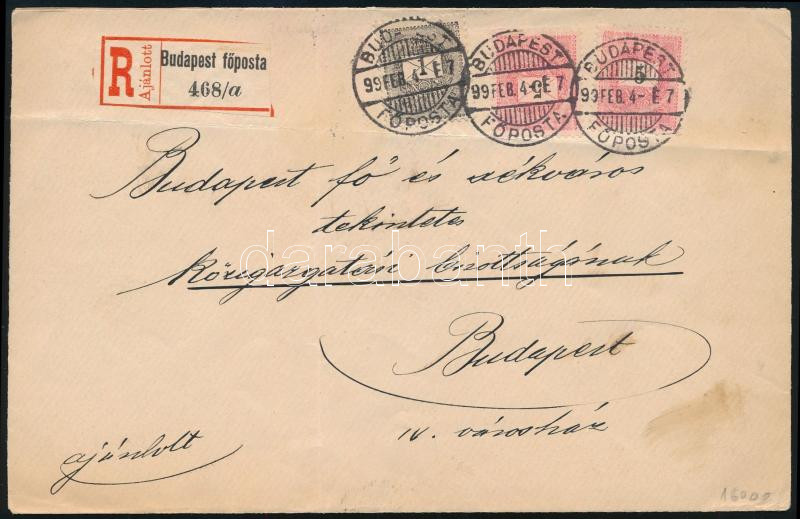 R
Ajánlott
Budapest főposta
468/a
BUDAPEST
99 FEB. 4- E 7
FŐPOSTA
1
BUDAPEST
99 FEB. 4- E 7
FŐPOSTA
5
BUDAPEST
99 FEB. 4- E 7
FŐPOSTA
5
Budapest fő és székváros
tekintetes
közigazgatási bizottságának
Budapest
IV. városház
ajánlott
darabanth
16000